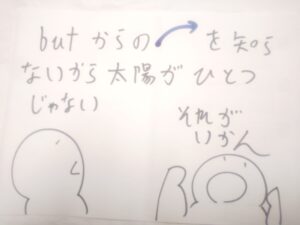 but からの を知ら
ないから太陽が ひとつ
じゃない
それが
いかん